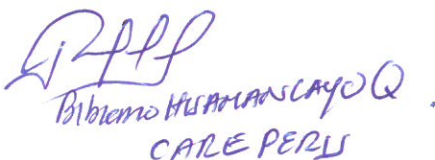 Bibiano HUAMANCAYO Q.
CARE PERU